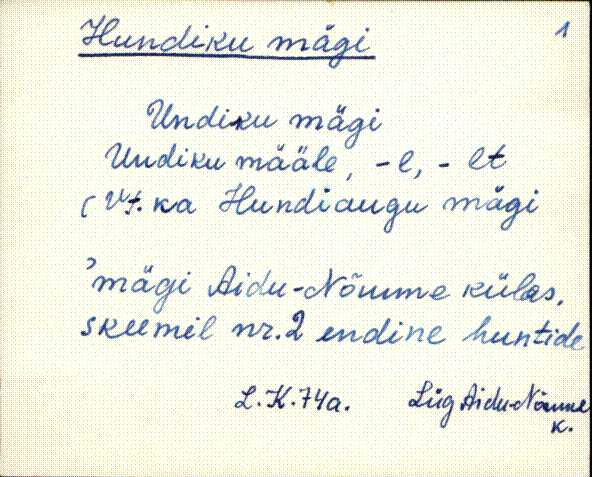 Hundiku mägi 1
Undiku mägi
Undiku määle, -l, -lt
(Vt. ka Hundiaugu mägi
'mägi Aidu-Nõmme külas,
skeemil nr. 2 endine huntide
L. K. 74a. Lüg Aidu-Nõmme
k.